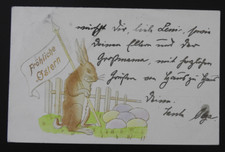 Fröhliche
Ostern
wünscht Dir, lieb
Deinen Eltern und der
Großmama, mit herzlichen
Grüßen von Haus zu Haus
Deine